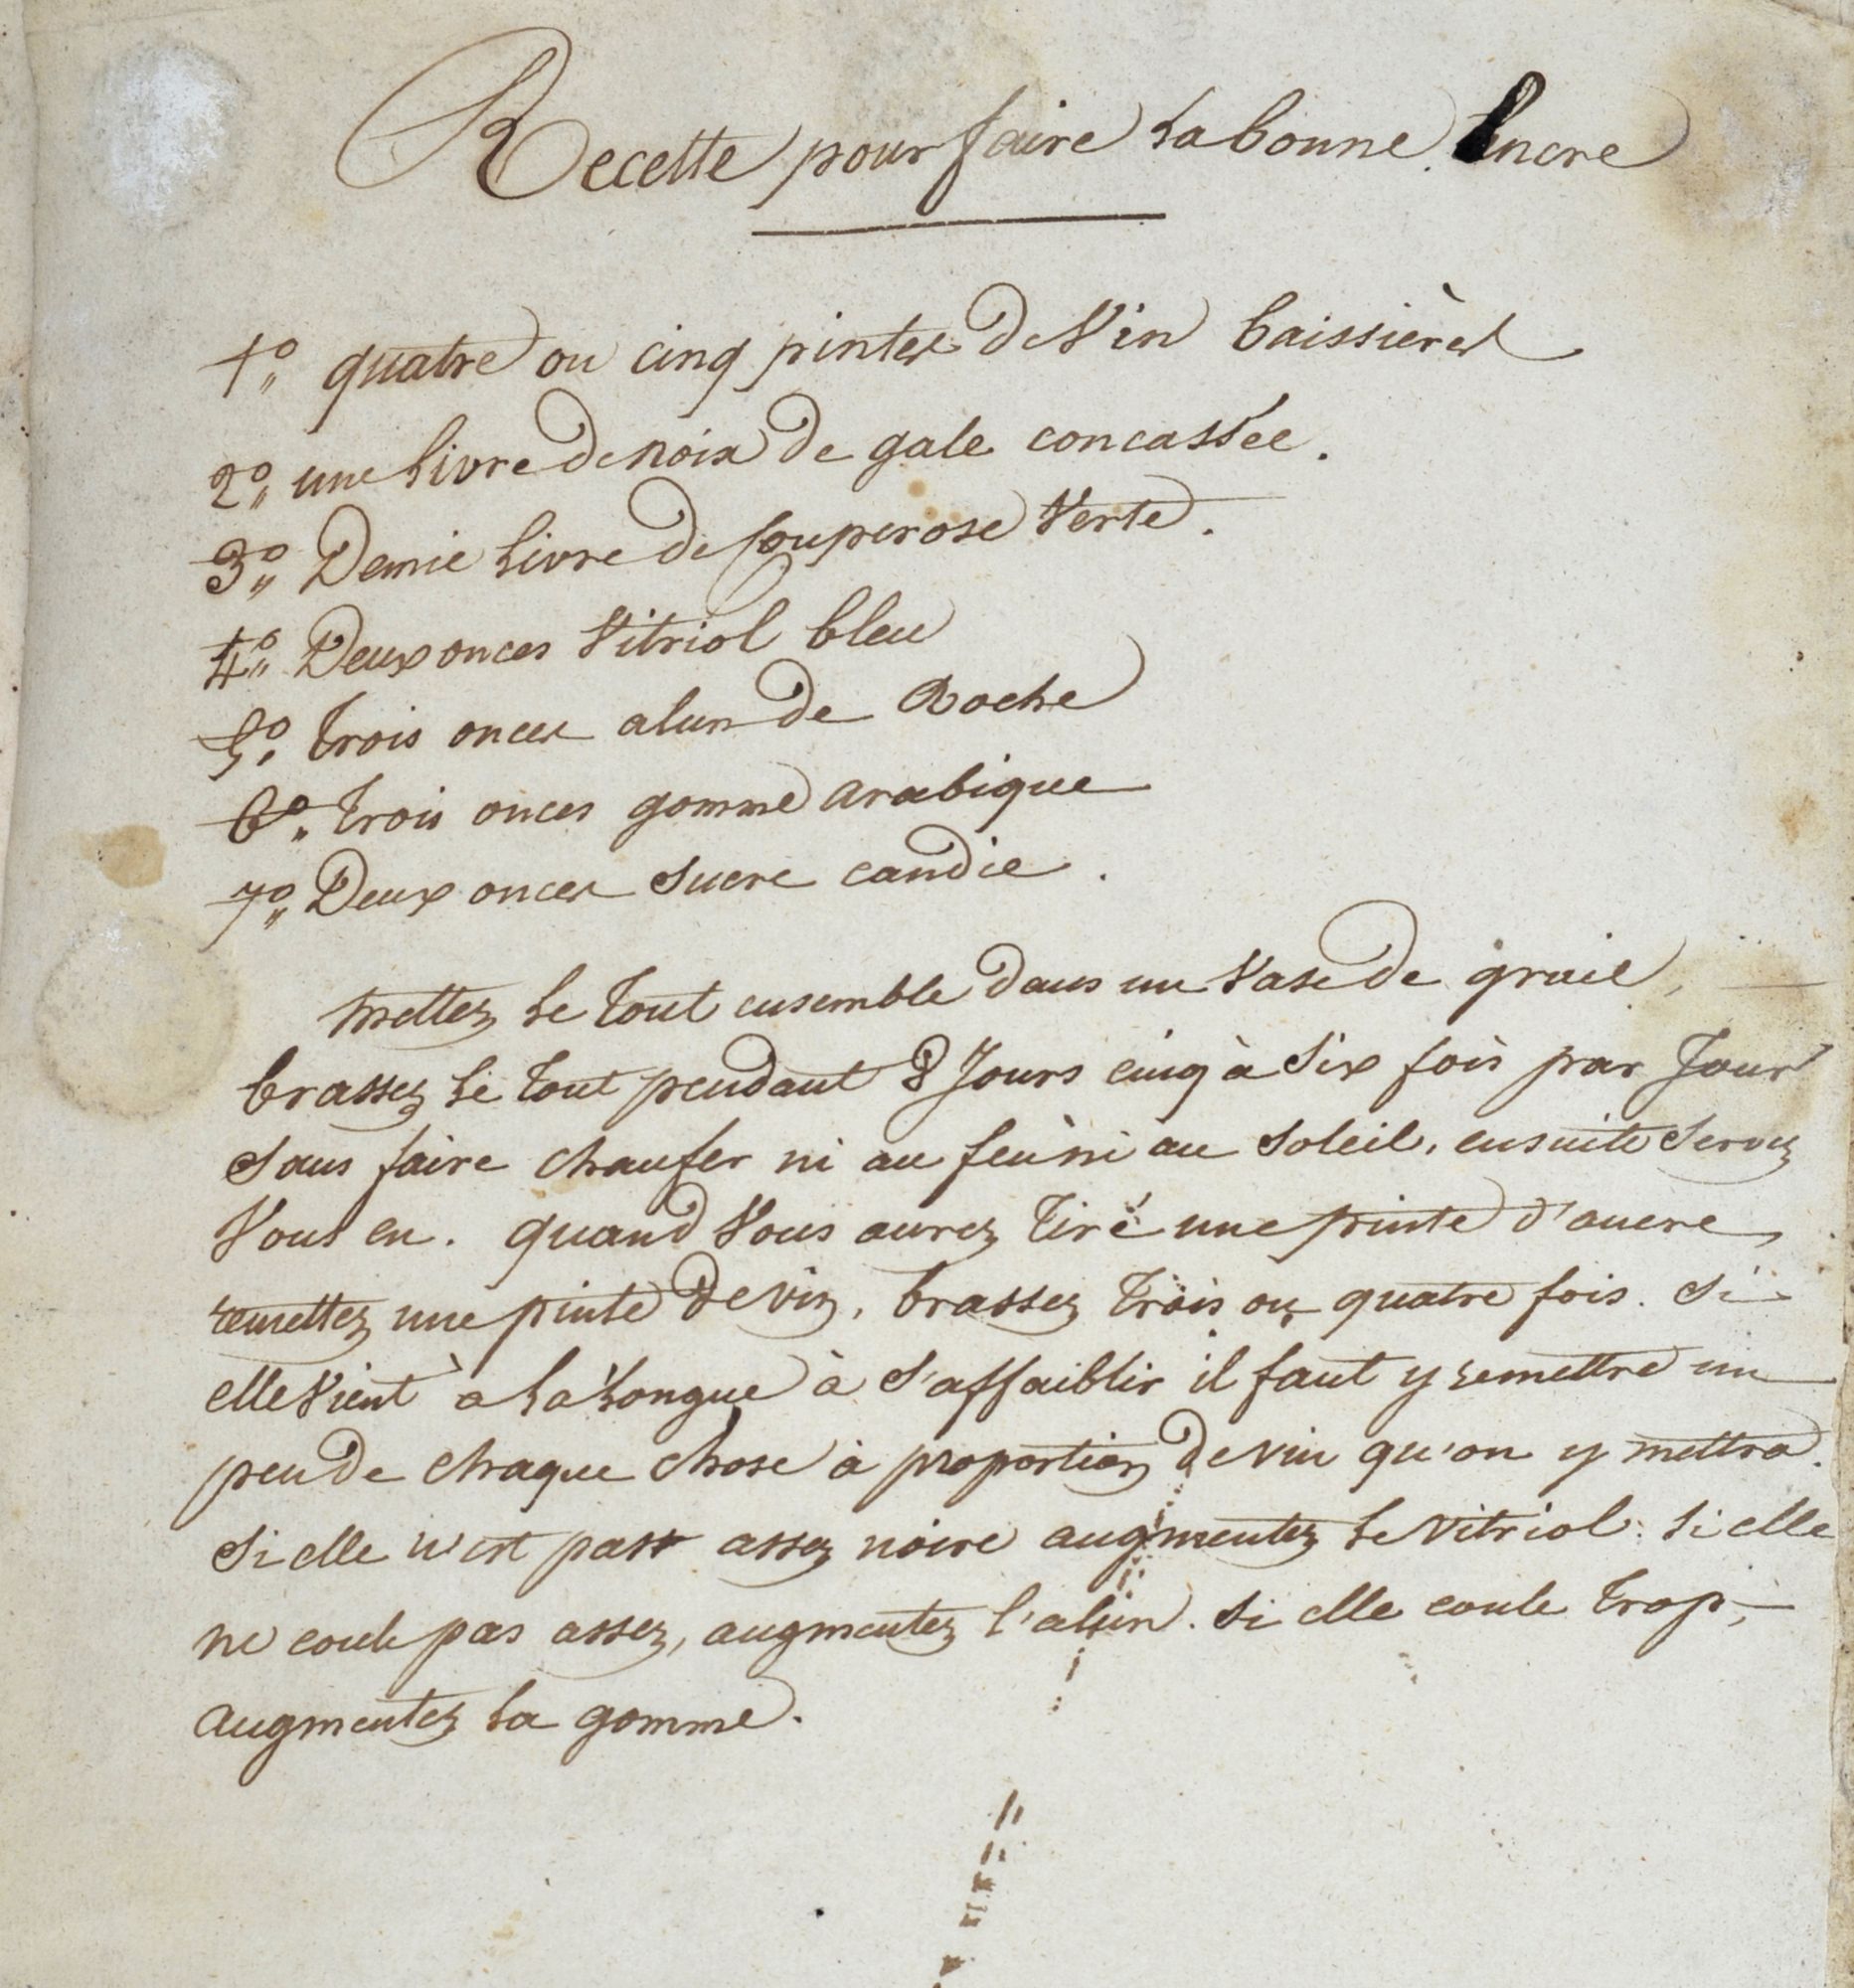 Recette pour faire la bonne Encre
1° quatre ou cinq pintes de Vin baissières
2° une livre de noix de gale concassée.
3° Demie livre de Couperose Verte.
4° Deux onces Vitriol bleu
5° trois onces alun de Roche
6° trois onces gomme arabique
7° Deux onces sucre candie.
mettez le tout ensemble dans un Vase de graie,
brassez le tout pendant 8 Jours cinq à Six fois par Jour
sans faire chaufer ni au feu ni au Soleil, ensuite servez
Vous en. quand Vous aurez tiré une pinte d'ancre,
remettez une pinte de vin, brassez trois ou quatre fois. Si
elle Vient à la longue à s'affaiblir il faut y remettre un
peu de chaque chose à proportion de vin qu'on y mettra.
Si elle n'est pas assez noire augmentez le Vitriol. Si elle
ne coule pas assez, augmentez l'alun. Si elle coule trop,
augmentez la gomme.